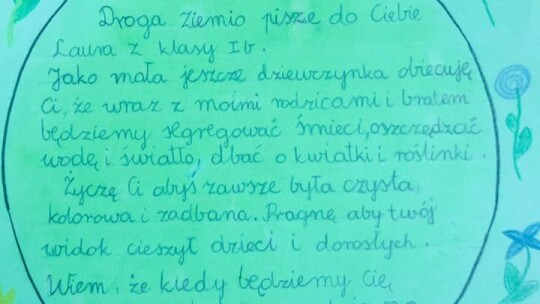 Droga Ziemio pisze do Ciebie
Laura z klasy Ib.
Jako mała jeszcze dziewczynka obiecuję
Ci, że wraz z moimi rodzicami i bratem
będziemy segregować śmieci, oszczędzać
wodę i światło, dbać o kwiatki i roślinki.
Życzę Ci abyś zawsze była czysta,
kolorowa i zadbana. Pragnę aby twój
widok cieszył dzieci i dorosłych.
Wiem, że kiedy będziemy Cię